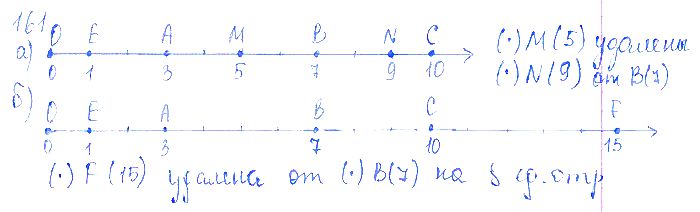 161
О E A M B N C (·) M(5) удалены
а) 0 1 3 5 7 9 10 (·) N(9) от B(7)
б) О E A B C F
0 1 3 7 10 15
(·) F(15) удалена от (·) B(7) на 8 ед. отр